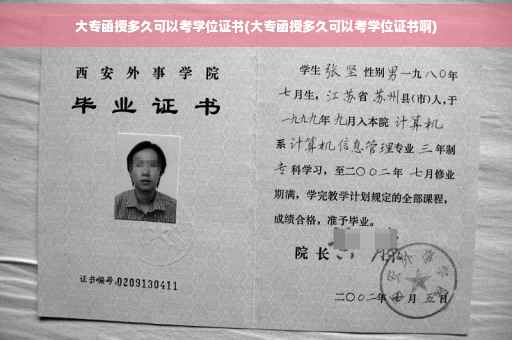 大专函授多久可以考学位证书(大专函授多久可以考学位证书啊)
西安外事学院
毕业证书
证书编号:0209130411
学生 张坚 性别 男 一九八〇年
七月生, 江苏省 苏州县(市)人,于
一九九九年 九月入本院 计算机
系 计算机信息管理专业 三 年制
专科学习,至二〇〇二年 七月修业
期满,学完教学计划规定的全部课程,
成绩合格,准予毕业。
院长
二〇〇二年 月 五日